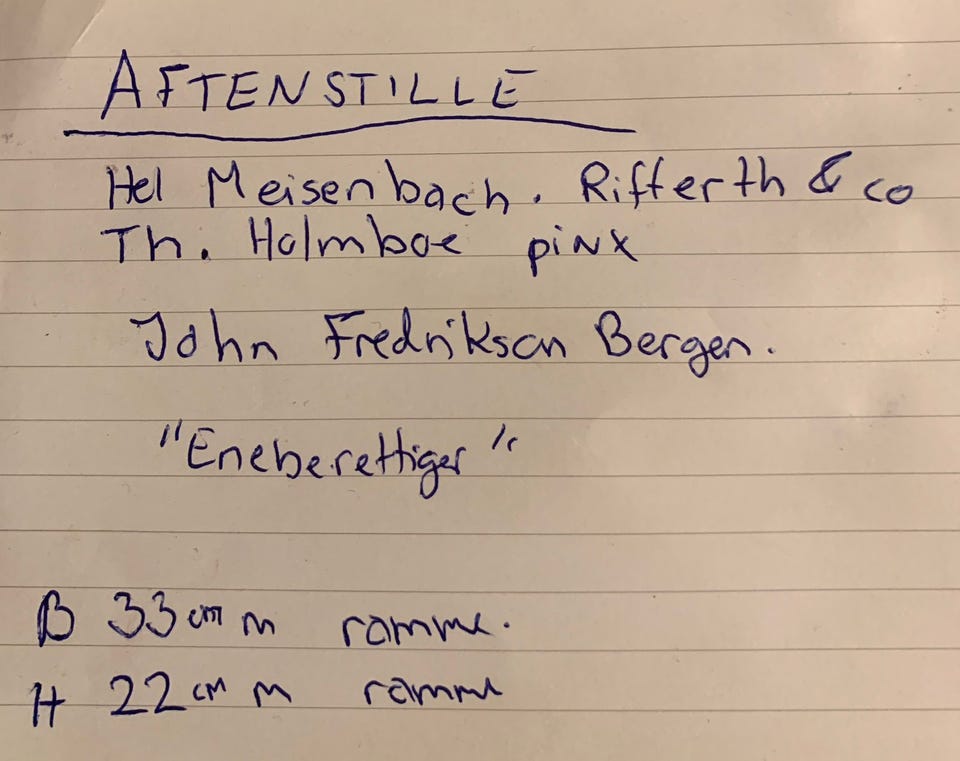 AFTENSTILLE
Hel Meisenbach. Rifferth & co
Th. Holmboe pinx
John Fredrikson Bergen.
"Eneberettiger"
B 33 cm m ramme.
H 22 cm m ramme